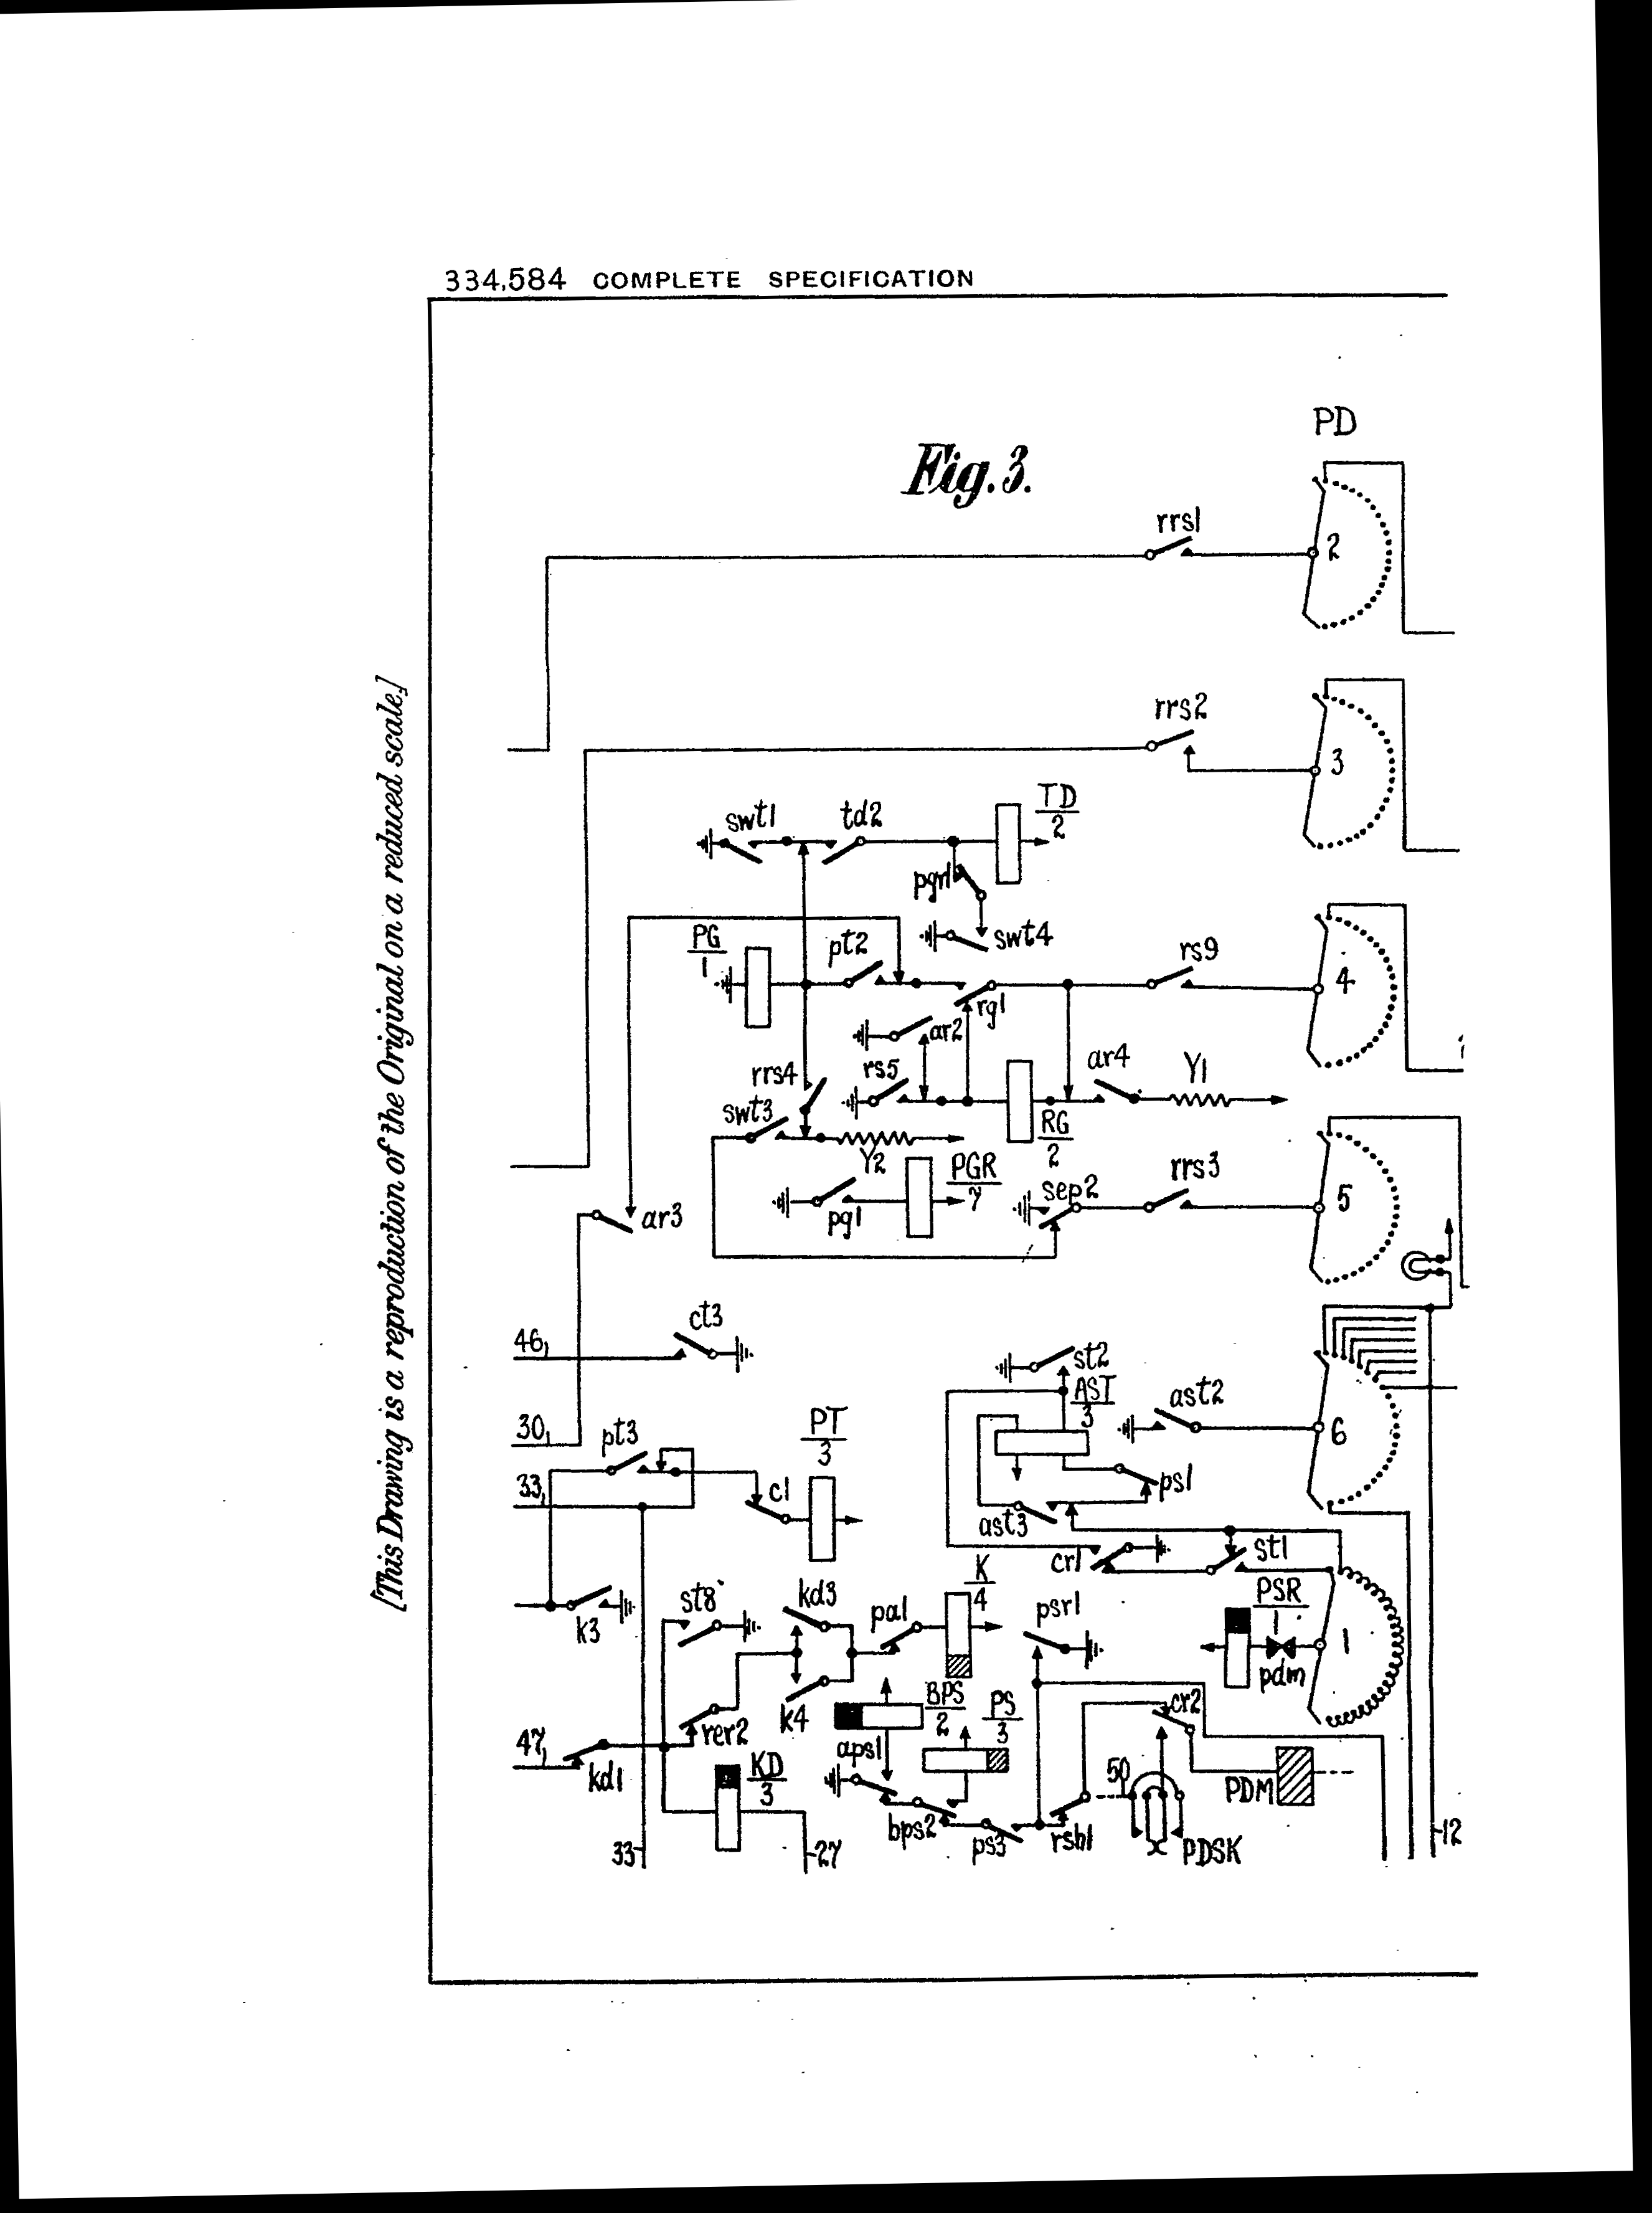 334,584 COMPLETE SPECIFICATION
[This Drawing is a reproduction of the Original on a reduced scale.]
Fig. 3.
PD
rrs1
2
rrs2
3
swt1
td2
TD
2
pgr1
swt4
PG
1
pt2
rg1
rs9
4
ar2
rrs4
rs5
ar4
Y1
swt3
RG
2
Y2
PGR
7
pg1
sep2
rrs3
5
ar3
46
ct3
st2
AST
3
ast2
6
30
pt3
PT
3
33
c1
ps1
ast3
cr1
st1
K
4
PSR
1
k3
st8
kd3
pa1
psr1
pdm
1
rer2
k4
BPS
2
PS
3
cr2
47
kd1
KD
3
aps1
bps2
ps3
rsh1
50
PDM
PDSK
33
27
12